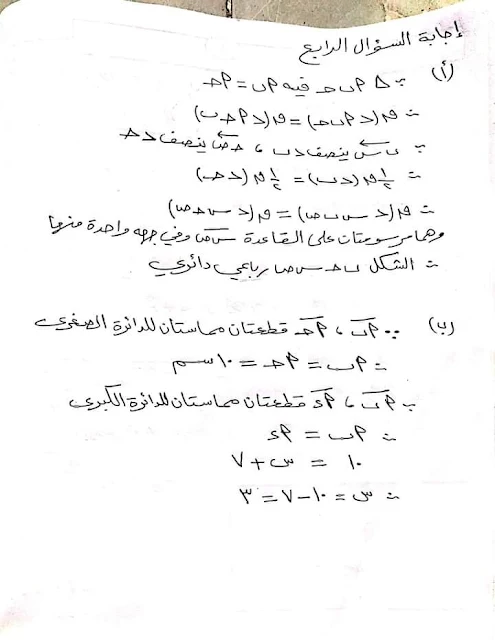 إجابة السؤال الرابع
(أ)
∵ Δ م ب حـ فيه م ب = م حـ
∴ ق(د م ب حـ) = ق(د م حـ ب)
∵ ب س ينصف د ب ، حـ ص ينصف د حـ
∴ ½ ق(د ب) = ½ ق(د حـ)
∴ ق(د س ب ص) = ق(د س حـ ص)
وهما مرسومتان على القاعدة س ص وفي جهه واحدة منها
∴ الشكل ب حـ س ص رباعي دائري
(ب) ∵ م ب ، م حـ قطعتان مماستان للدائرة الصغرى
∴ م ب = م حـ = ١٠ سم
∵ م ب ، م ء قطعتان مماستان للدائرة الكبرى
∴ م ب = م ء
١٠ = س + ٧
∴ س = ١٠ – ٧ = ٣